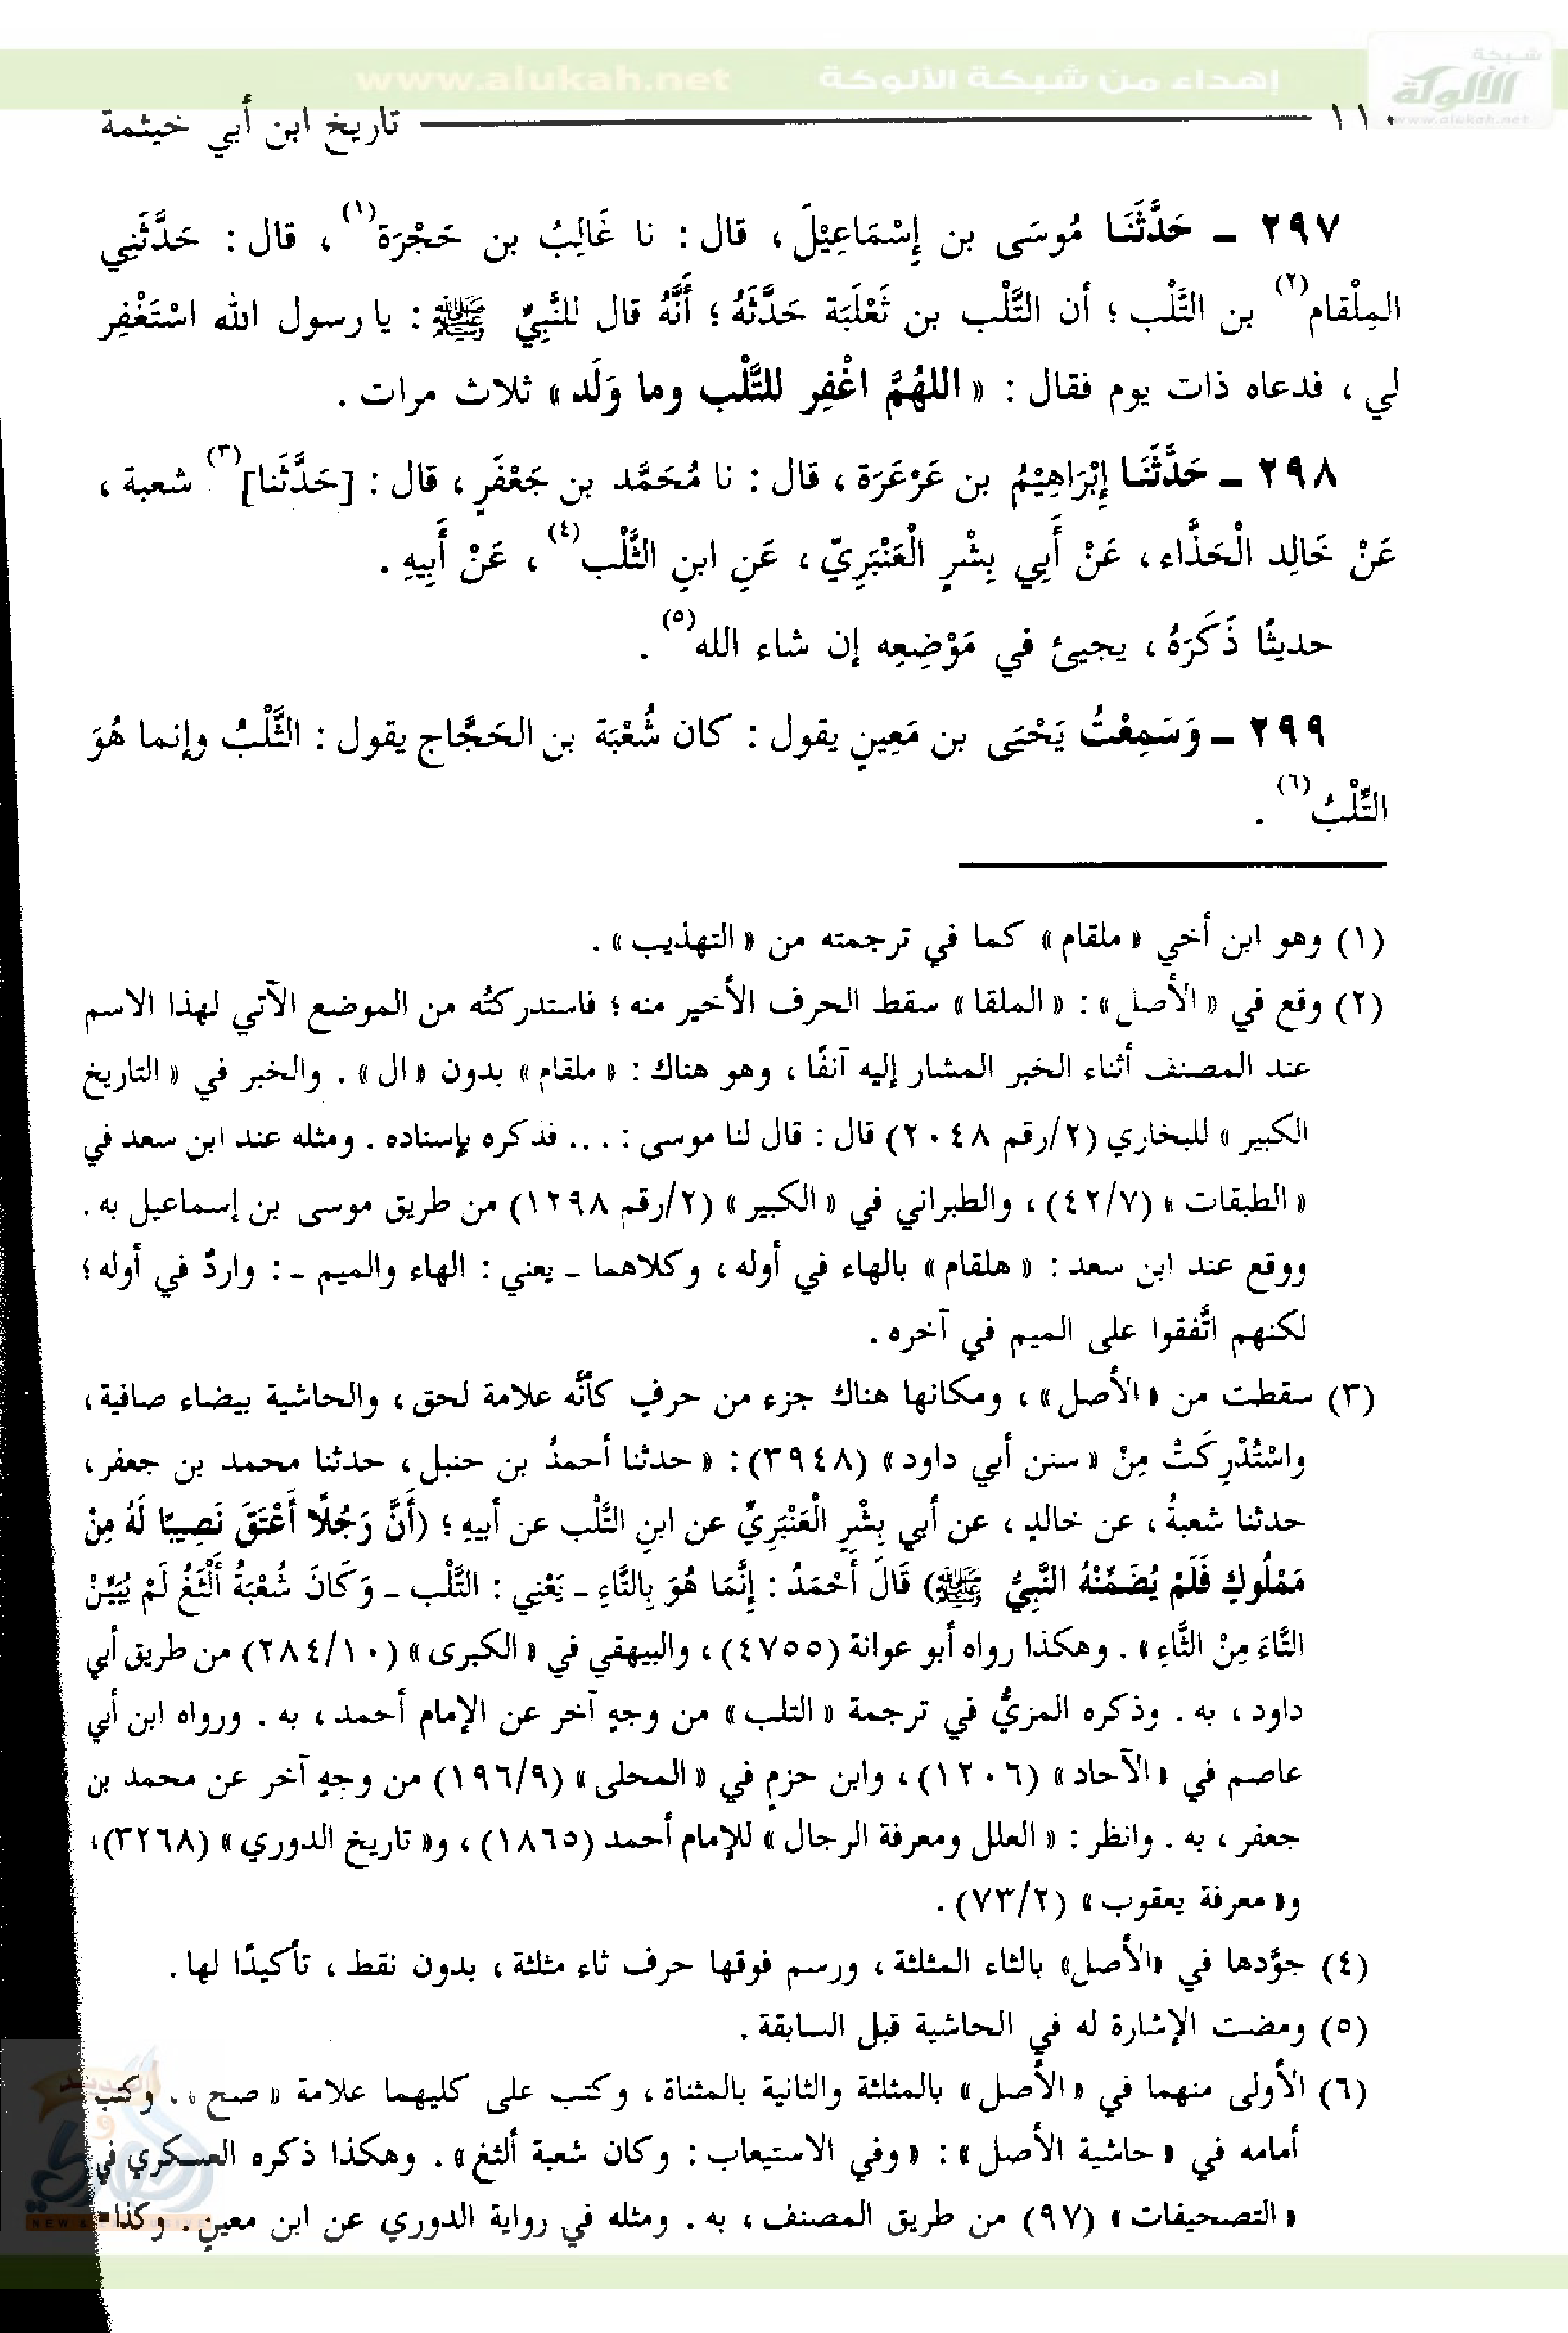 www.alukah.net إهداء من شبكة الألوكة
شبكة
الألوكة
www.alukah.net
١١٠ تاريخ ابن أبي خيثمة
٢٩٧ ـ حَدَّثَنَا مُوسَى بن إِسْمَاعِيْلَ ، قال : نا غَالِبُ بن حَجْرَة(١) ، قال : حَدَّثَنِي
المِلْقام(٢) بن التَّلْب ؛ أن التَّلْب بن ثَعْلَبَة حَدَّثَهُ ؛ أَنَّهُ قال للنَّبِيِّ ﷺ : يا رسول الله اسْتَغْفِر
لي ، فدعاه ذات يوم فقال : « اللهُمَّ اغْفِر للتَّلْب وما وَلَد » ثلاث مرات .
٢٩٨ ـ حَدَّثَنَا إِبْرَاهِيْمُ بن عَرْعَرَة ، قال : نا مُحَمَّد بن جَعْفَرٍ ، قال : [حَدَّثَنا](٣) شعبة ،
عَنْ خَالِد الْحَذَّاء ، عَنْ أَبِي بِشْرٍ الْعَنْبَرِيّ ، عَنِ ابنِ الثَّلْب(٤) ، عَنْ أَبِيهِ .
حديثًا ذَكَرَهُ ، يجيئ في مَوْضِعِه إن شاء الله(٥) .
٢٩٩ ـ وَسَمِعْتُ يَحْيَى بن مَعِينٍ يقول : كان شُعْبَة بن الحَجَّاج يقول : الثَّلْبُ وإنما هُوَ
التِّلْبُ(٦) .
(١) وهو ابن أخي « ملقام » كما في ترجمته من « التهذيب » .
(٢) وقع في « الأصل » : « الملقا » سقط الحرف الأخير منه ؛ فاستدركتُه من الموضع الآتي لهذا الاسم
عند المصنف أثناء الخبر المشار إليه آنفًا ، وهو هناك : « ملقام » بدون « ال » . والخبر في « التاريخ
الكبير » للبخاري (٢/رقم ٢٠٤٨) قال : قال لنا موسى : ... فذكره بإسناده . ومثله عند ابن سعد في
« الطبقات » (٤٢/٧) ، والطبراني في « الكبير » (٢/رقم ١٢٩٨) من طريق موسى بن إسماعيل به .
ووقع عند ابن سعد : « هلقام » بالهاء في أوله ، وكلاهما ـ يعني : الهاء والميم ـ : واردٌ في أوله ؛
لكنهم اتَّفقوا على الميم في آخره .
(٣) سقطت من « الأصل » ، ومكانها هناك جزء من حرفٍ كأنَّه علامة لحق ، والحاشية بيضاء صافية ،
واسْتُدْرِكَتْ مِنْ « سنن أبي داود » (٣٩٤٨) : « حدثنا أحمدُ بن حنبل ، حدثنا محمد بن جعفر ،
حدثنا شعبةُ ، عن خالدٍ ، عن أبي بِشْرٍ الْعَنْبَرِيِّ عن ابنِ التَّلْب عن أبيهِ ؛ (أَنَّ رَجُلًا أَعْتَقَ نَصِيبًا لَهُ مِنْ
مَمْلُوكٍ فَلَمْ يُضَمِّنْهُ النَّبِيُّ ﷺ) قَالَ أَحْمَدُ : إِنَّمَا هُوَ بِالتَّاءِ ـ يَعْنِي : التَّلْب ـ وَكَانَ شُعْبَةُ أَلْثَغُ لَمْ يُبَيِّنْ
التَّاءَ مِنْ الثَّاءِ » . وهكذا رواه أبو عوانة (٤٧٥٥) ، والبيهقي في « الكبرى » (٢٨٤/١٠) من طريق أبي
داود ، به . وذكره المزيُّ في ترجمة « التلب » من وجهٍ آخر عن الإمام أحمد ، به . ورواه ابن أبي
عاصم في « الآحاد » (١٢٠٦) ، وابن حزمٍ في « المحلى » (١٩٦/٩) من وجهٍ آخر عن محمد بن
جعفر ، به . وانظر : « العلل ومعرفة الرجال » للإمام أحمد (١٨٦٥) ، و« تاريخ الدوري » (٣٢٦٨) ،
و« معرفة يعقوب » (٧٣/٢) .
(٤) جوَّدها في « الأصل » بالثاء المثلثة ، ورسم فوقها حرف ثاء مثلثة ، بدون نقط ، تأكيدًا لها .
(٥) ومضت الإشارة له في الحاشية قبل السابقة .
(٦) الأولى منهما في « الأصل » بالمثلثة والثانية بالمثناة ، وكتب على كليهما علامة « صح » . وكتب
أمامه في « حاشية الأصل » : « وفي الاستيعاب : وكان شعبة ألثغ » . وهكذا ذكره العسكري في
« التصحيفات » (٩٧) من طريق المصنف ، به . ومثله في رواية الدوري عن ابن معينٍ . وكذا=
NEW & EXCLUSIVE